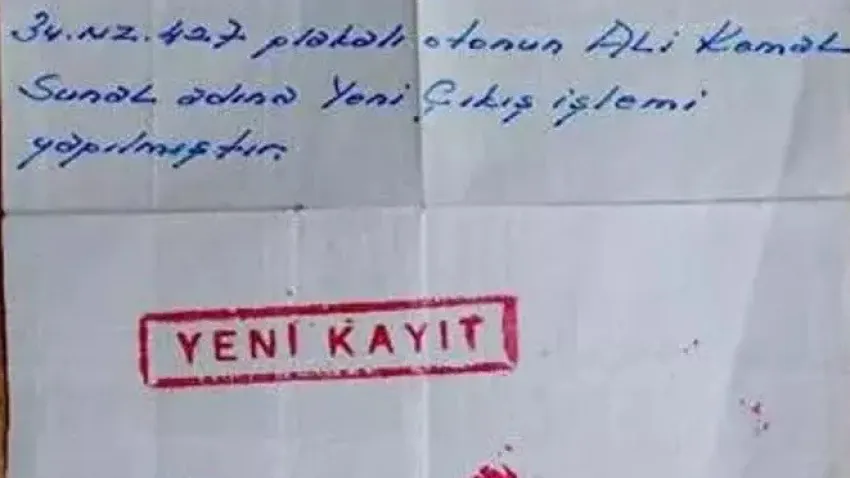 34.NZ.427 plakalı otonun ALi Kemal
Sunal adına Yeni Çıkış işlemi
yapılmıştır.
YENİ KAYIT